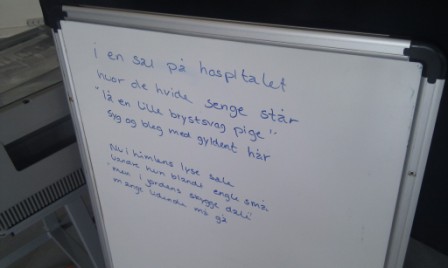 i en sal på hospitalet
hvor de hvide senge står
"lå en lille brystsvag pige"
syg og bleg med gyldent hår
Nu i himlens lyse sale
vandre hun blandt engle små
"Men i jordens skygge dale"
mange lidende må gå